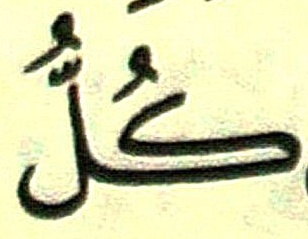 كُلُّ